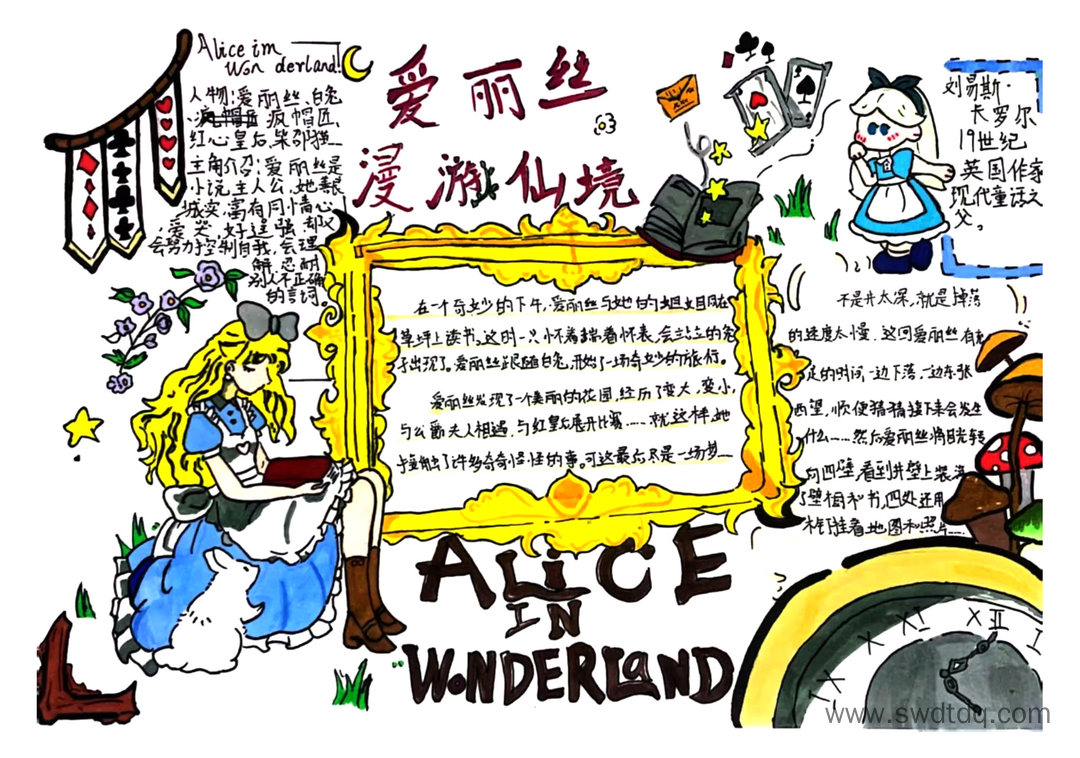 Alice im
Won derland!
爱丽丝
漫游仙境
人物:爱丽丝、白兔
疯帽匠、
红心皇后、柴郡猫…
主角介绍:爱丽丝是
小说主人公,她
城安、富有同情心
爱哭、好逞强、却又
会努力控制自我,会理
解、忍耐
别人不正确
的言词。
刘易斯·
卡罗尔
19世纪
英国作家
现代童话之
父。
在一个奇妙的下午,爱丽丝与她的姐姐目前在
草坪上读书,这时一只怀着揣着怀表,会站立的兔
子出现了。爱丽丝跟随白兔,开始了一场奇妙的旅行。
爱丽丝发现了一个美丽的花园,经历了变大,变小,
与公爵夫人相遇,与红皇后展开比赛……就这样,她
接触了许多奇奇怪怪的事。可这最后尽是一场梦…
不是井太深,就是掉落
的速度太慢,这回爱丽丝有充
足的时间一边下落,一边东张
西望,顺便猜猜接下来会发生
什么……然后爱丽丝将目光转
向四壁,看到井壁上装满
了壁橱和书,四处还用
木钉挂着地图和照片……
ALiCE
IN
WoNDERLaND
X XI XII
www.swdtdq.com